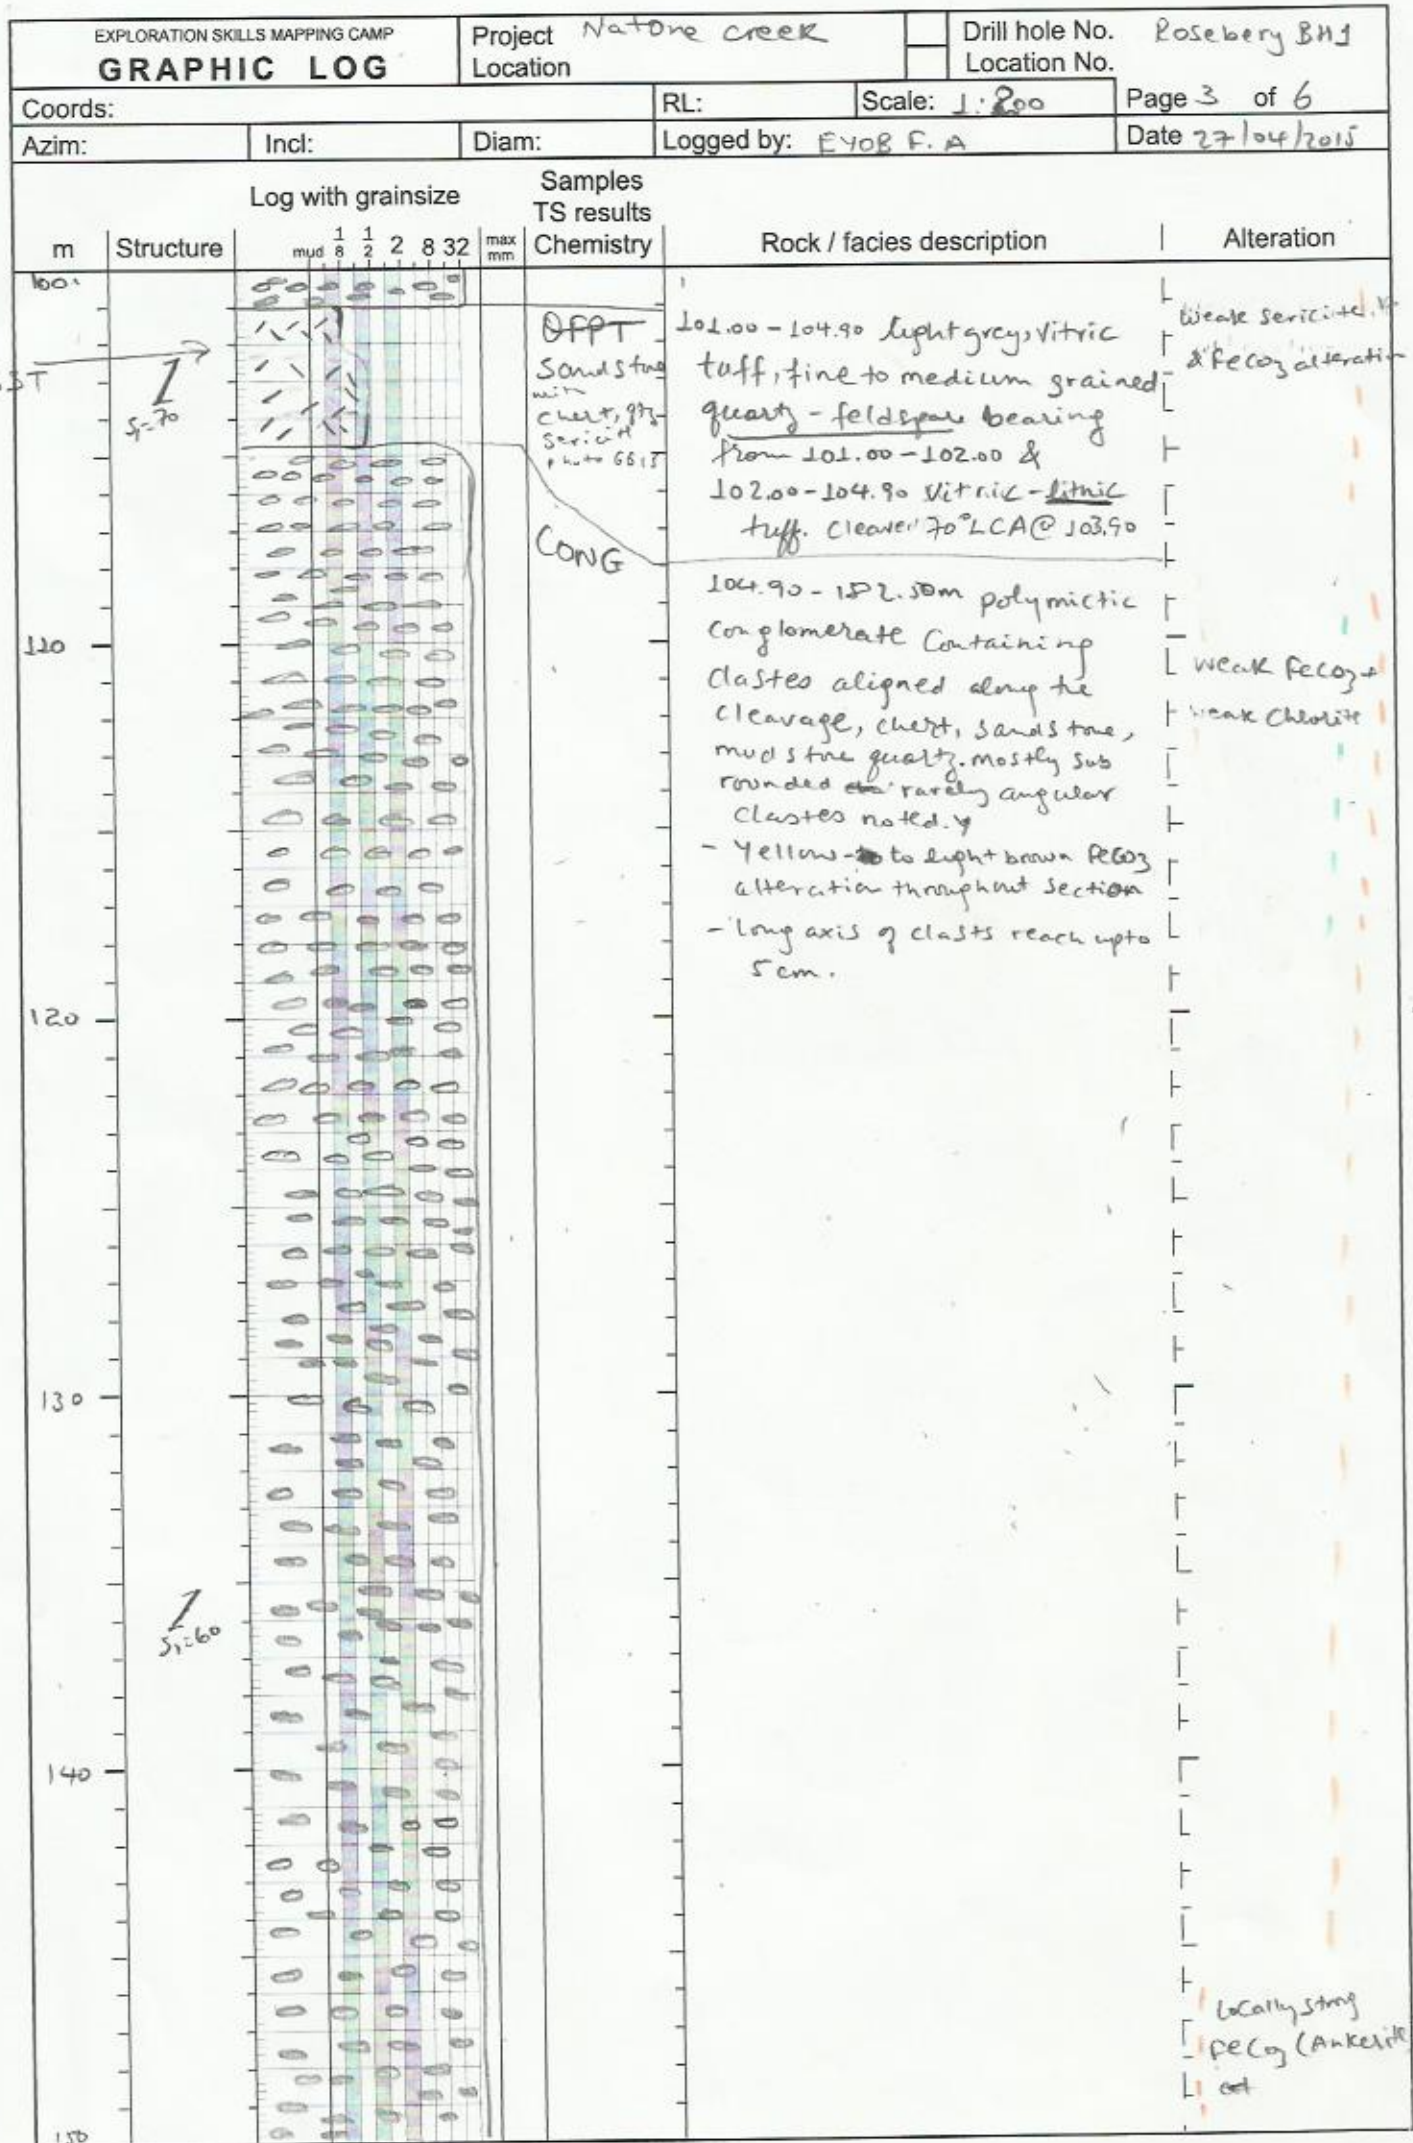 EXPLORATION SKILLS MAPPING CAMP
GRAPHIC LOG
Project Natone creek
Location
Drill hole No. Rosebery BH1
Location No.
Coords:
RL:
Scale: 1:200
Page 3 of 6
Azim:
Incl:
Diam:
Logged by: EYOB F. A
Date 27/04/2015
m
Structure
Log with grainsize
mud 1/8 1/2 2 8 32
max mm
Samples
TS results
Chemistry
Rock / facies description
Alteration
100
ST
S1=70
QFPT
Sandstone
with
chert, qtz-
sericite
photo 6615
CONG
101.00 - 104.90 light grey, vitric
tuff, fine to medium grained
quartz - feldspare bearing
from 101.00 - 102.00 &
102.00 - 104.90 vitric - lithic
tuff. Cleaver 70° LCA @ 103.90
104.90 - 182.50m polymictic
conglomerate containing
clastes aligned along the
cleavage, chert, sandstone,
mudstone quartz. mostly sub
rounded rarely angular
clastes noted.
- Yellow - to light brown FeCO3
alteration throughout section
- long axis of clasts reach upto
5 cm.
Weak sericite
& FeCO3 alteration
weak FeCO3 +
weak Chlorite
110
120
130
S1=60
140
locally strong
FeCO3 (Ankerite
150